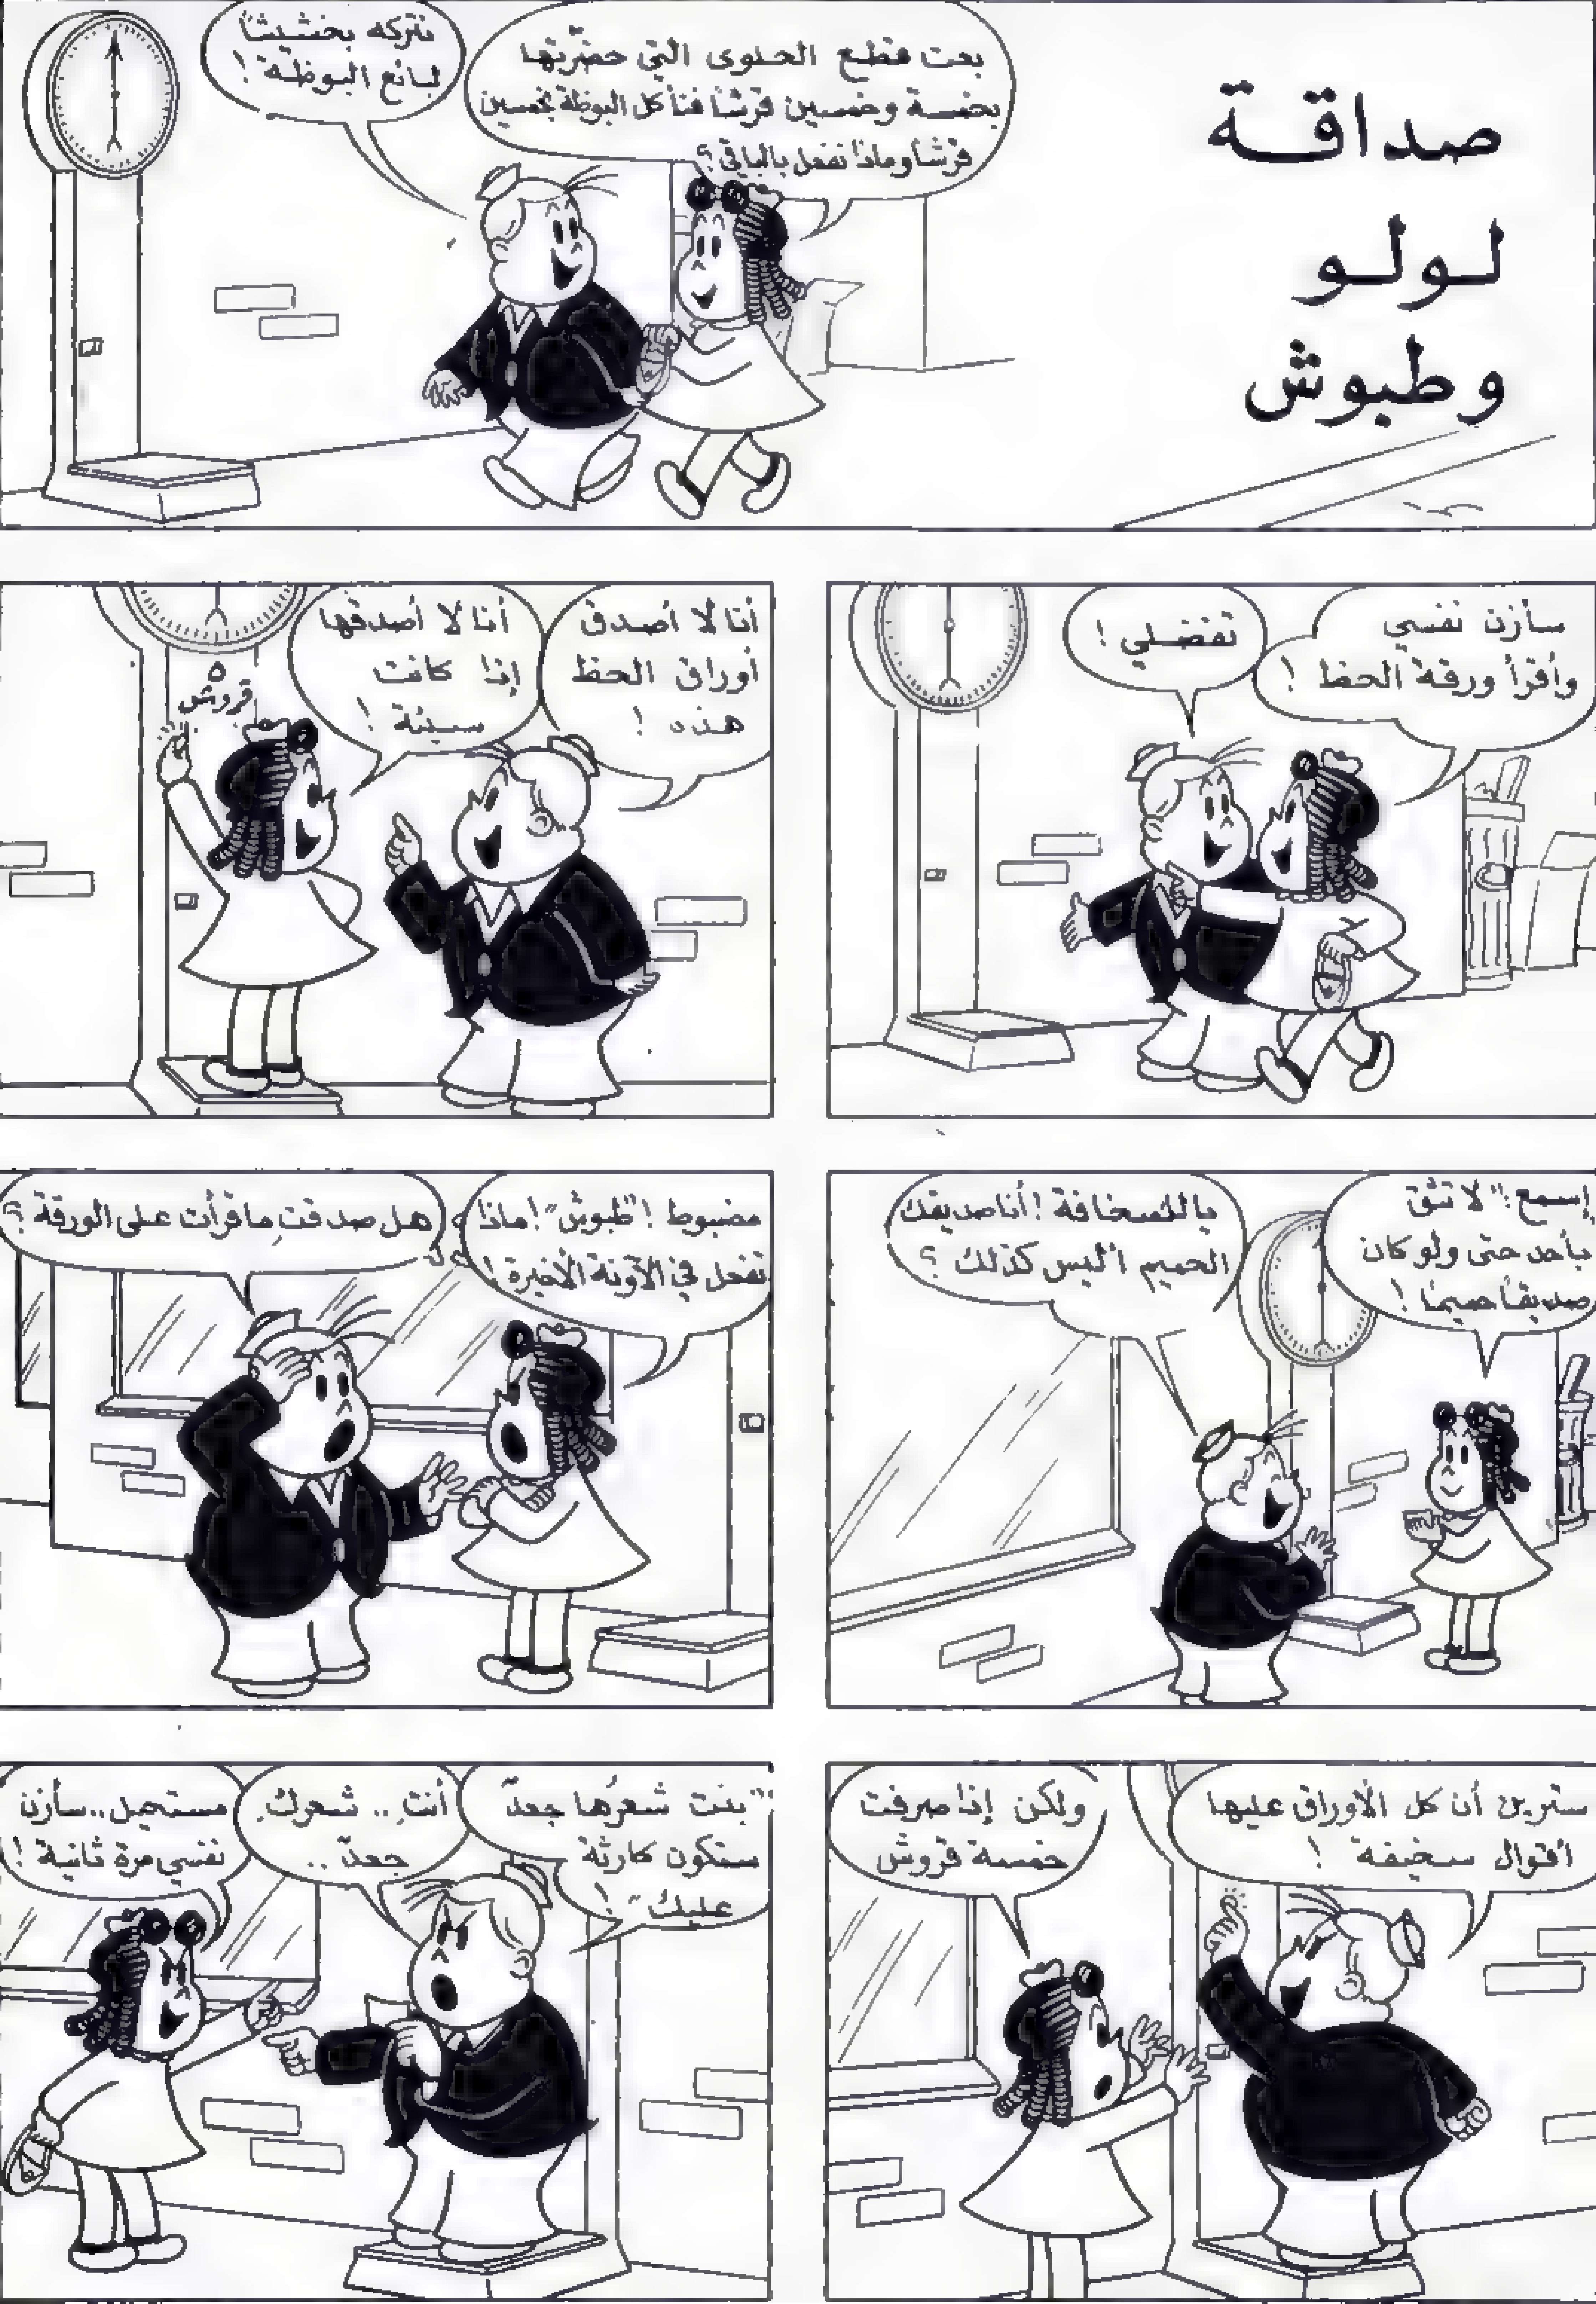 صداقة
لولو
وطبوش
بعت قطع الحلوى التي حضّرتها
بخمسة وخمسين قرشاً فنأكل البوظة بخمسين
قرشاً وماذا نفعل بالباقي؟
نتركه بخشيشاً
لبائع البوظة!
سأزن نفسي
وأقرأ ورقة الحظ!
تفضلي!
أنا لا أصدق
أوراق الحظ
هذه!
أنا لا أصدقها
إذا كانت
سيئة!
٥
قروش
إسمع: "لا تثق
بأحد حتى ولو كان
صديقاً حميمًا!
يا للسخافة! أنا صديقك
الحميم أليس كذلك؟
مضبوط! "طبوش"! ماذا
تفعل في الآونة الأخيرة!
هل صدقتِ ما قرأت على الورقة؟
سترين أن كل الأوراق عليها
أقوال سخيفة!
ولكن إذا صرفت
خمسة قروش
"بنت شعرُها جعدٌ
ستكون كارثة
عليك"!
أنتِ.. شعركِ
جعدٌ..
مستحيل.. سأزن
نفسي مرة ثانية!